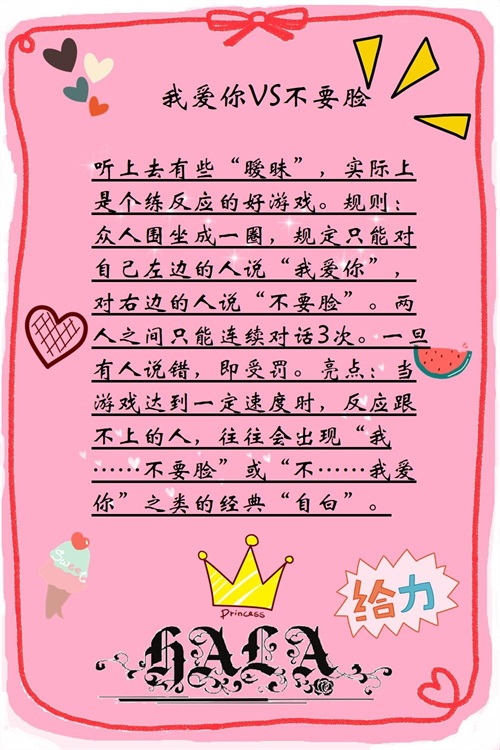 我爱你VS不要脸
听上去有些“暧昧”，实际上
是个练反应的好游戏。规则：
众人围坐成一圈，规定只能对
自己左边的人说“我爱你”，
对右边的人说“不要脸”。两
人之间只能连续对话3次。一旦
有人说错，即受罚。亮点：当
游戏达到一定速度时，反应跟
不上的人，往往会出现“我
……不要脸”或“不……我爱
你”之类的经典“自白”。
Sweet
Princess
给力
HALA